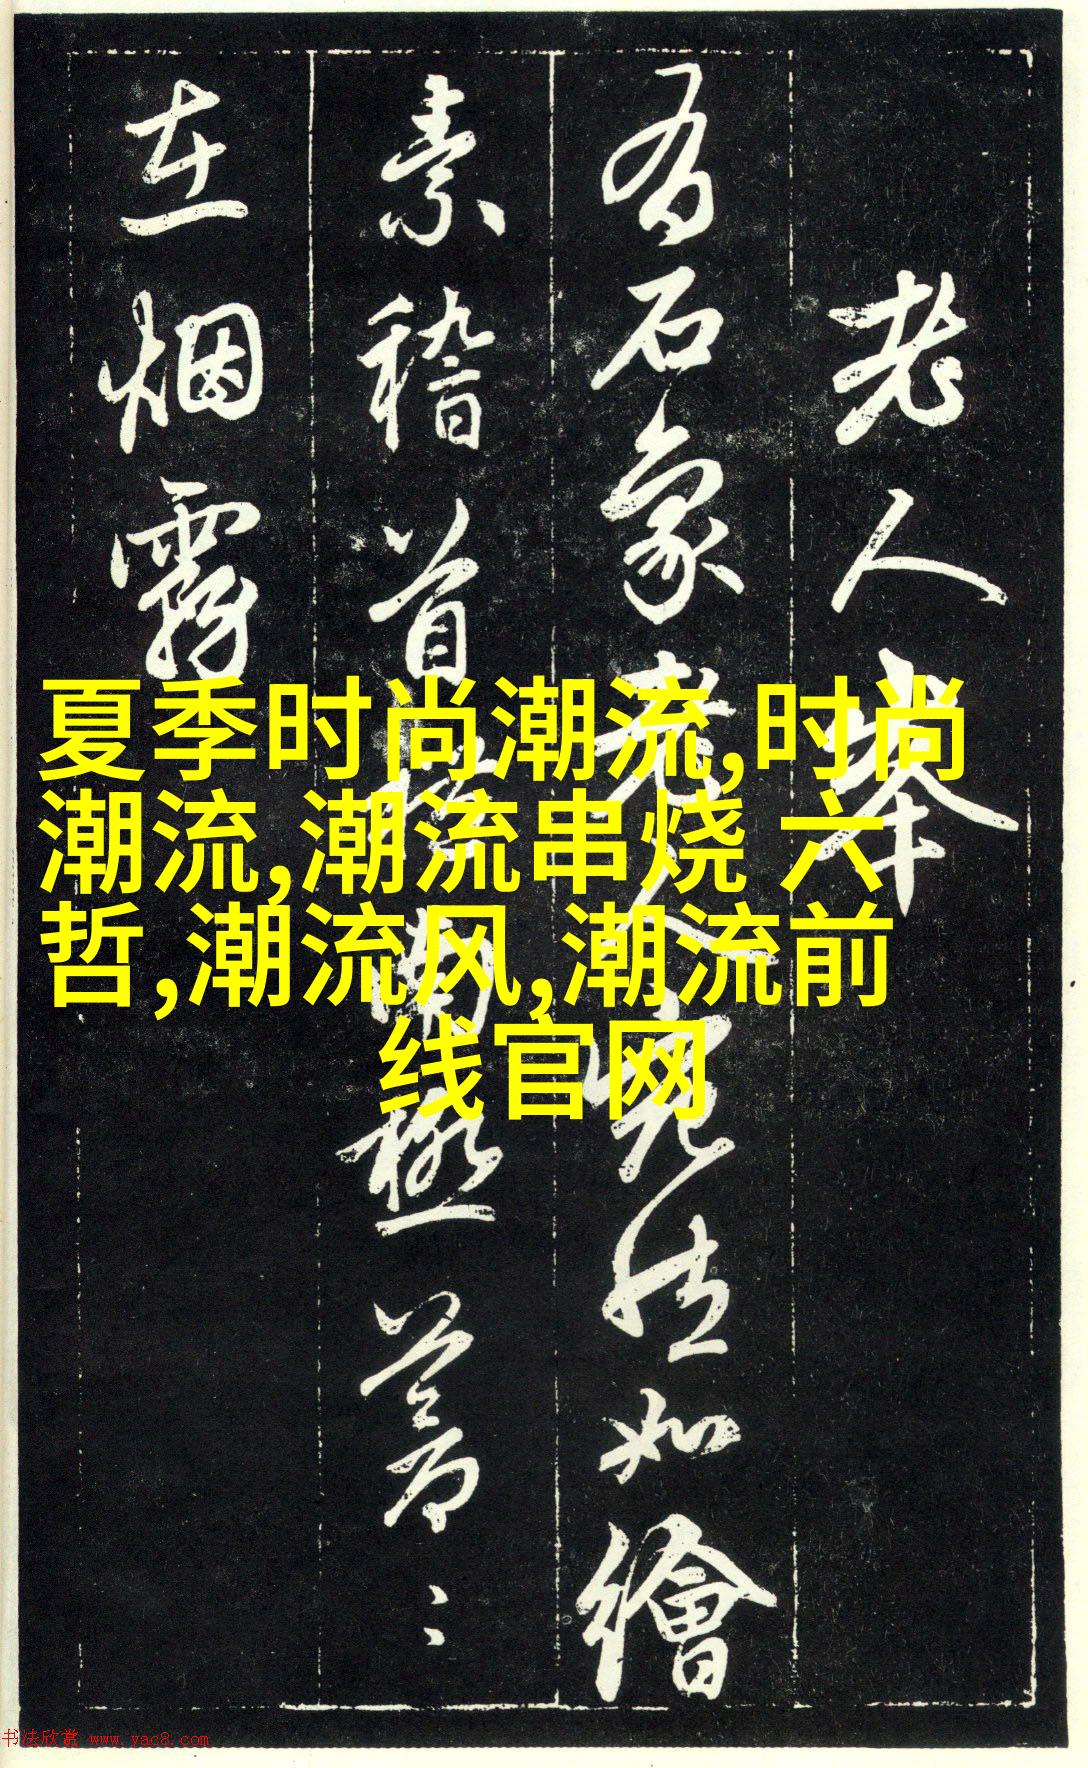 老人峯
有石象老人宛然如繪
素稽首南極蒼〻
在烟霧
夏季时尚潮流,时尚
潮流,潮流串烧 六
哲,潮流风,潮流前
线官网
书法欣赏 www.yac8.com